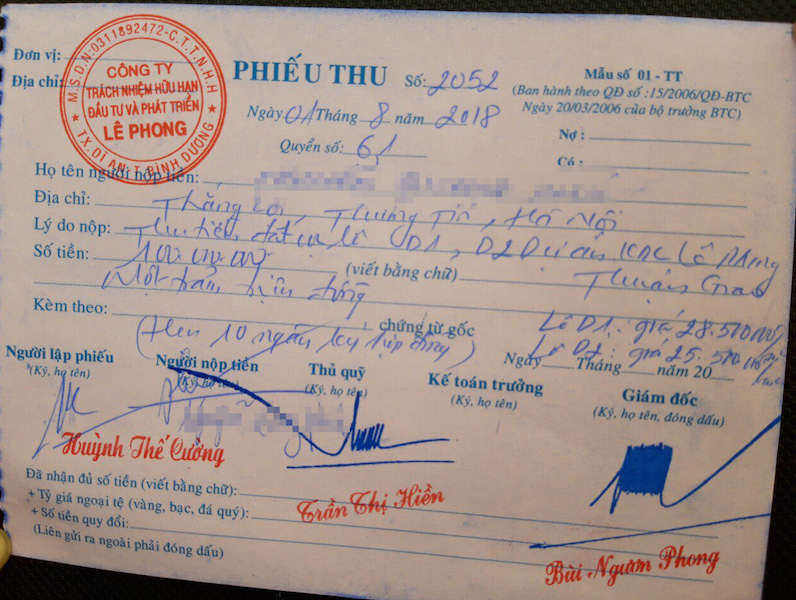 M.S.D.N:0311892472-C.T.T.N.H.H
CÔNG TY
TRÁCH NHIỆM HỮU HẠN
ĐẦU TƯ VÀ PHÁT TRIỂN
LÊ PHONG
TX.DĨ AN-T.BÌNH DƯƠNG
Đơn vị:
Địa chỉ:
PHIẾU THU Số: 2052
Ngày 01 Tháng 8 năm 2018
Quyển số: 6,1
Mẫu số 01 - TT
(Ban hành theo QĐ số :15/2006/QĐ-BTC
Ngày 20/03/2006 của bộ trưởng BTC)
Nợ :
Có :
Họ tên người nộp tiền:
Địa chỉ: Thắng Lợi, Thường Tín, Hà Nội
Lý do nộp: Thu tiền đất lô D1, D2 Dự án KDC Lê Phong
Thuận Giao
Số tiền: 100.000.000 (viết bằng chữ)
Một trăm triệu đồng
Kèm theo: chứng từ gốc
(Hẹn 10 ngày ký hợp đồng)
Lô D1: giá 28.510.000
Lô D2: giá 25.510.000
Ngày Tháng năm 20
Người lập phiếu
(Ký, họ tên)
Người nộp tiền
(Ký, họ tên)
Thủ quỹ
(Ký, họ tên)
Kế toán trưởng
(Ký, họ tên)
Giám đốc
(Ký, họ tên, đóng dấu)
Huỳnh Thế Cường
Trần Thị Hiền
Bùi Ngươn Phong
Đã nhận đủ số tiền (viết bằng chữ):
+ Tỷ giá ngoại tệ (vàng, bạc, đá quý):
+ Số tiền quy đổi:
(Liên gửi ra ngoài phải đóng dấu)